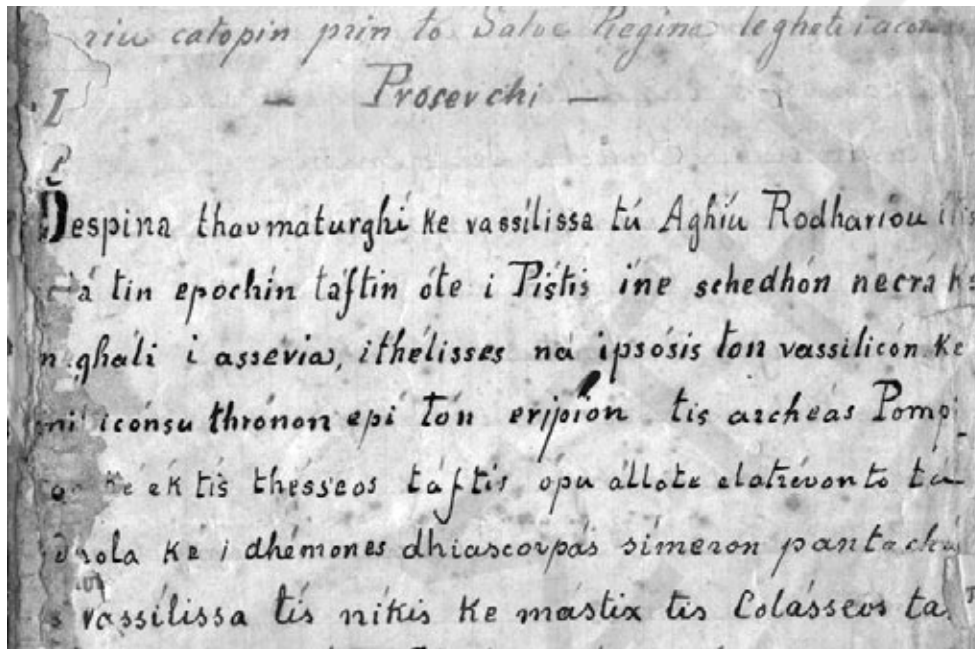 catopin prin to Salve Regina leghete
— Prosevchi —
Despina thavmaturghí ke vassílissa tú Aghíu Rodharíou
tin epochin táftin óte i Pístis íne schedhón necrá
ghali i assévia, ithélisses ná ipsósis ton vassilicón ke
iconsu thrónon epí tón eripíon tis archeás Pompi
ké ék tis thésseos táftis ópu állote elatrévonto tá
ke i dhémones dhiascorpás símeron
vassílissa tís níkis ke mástix tis Colásseos